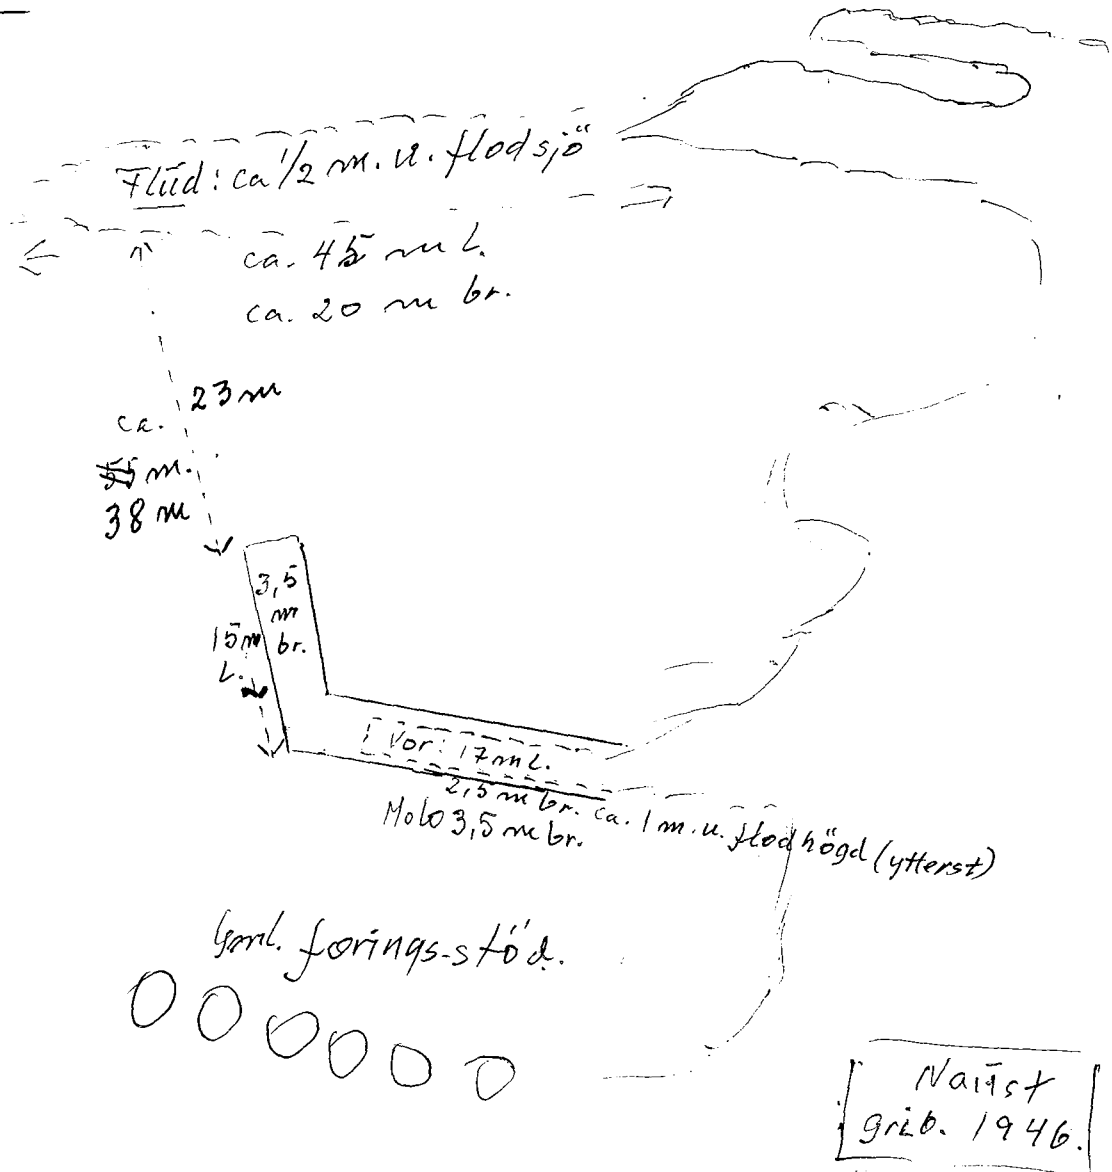 Flud: ca 1/2 m. u. flodsjö
ca. 45 m L.
ca. 20 m br.
23 m
ca.
55 m.
38 m
3,5
m
br.
15m
L.
Vor: 17m L.
2,5 m br. ca. 1 m. u. flodhögd (ytterst)
Molo 3,5 m br.
Gml. forings-stöd.
Naust
grib. 1946.